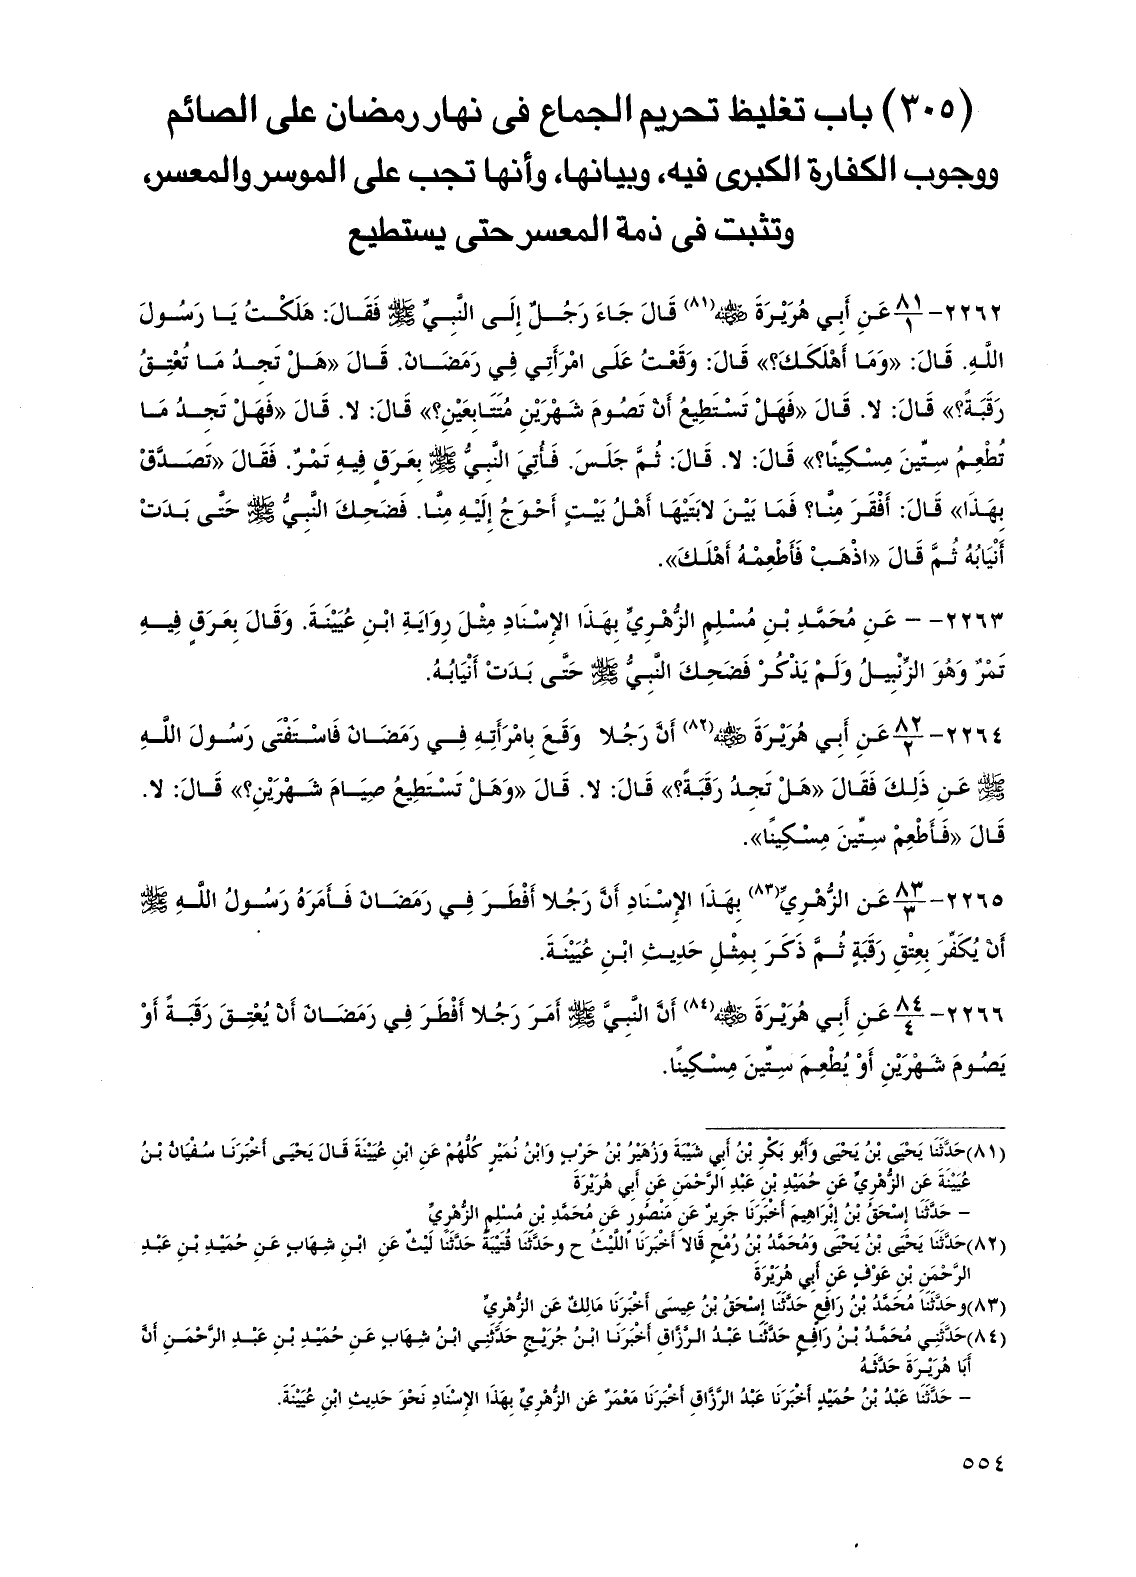 (٣٠٥) باب تغليظ تحريم الجماع فى نهار رمضان على الصائم
ووجوب الكفارة الكبرى فيه، وبيانها، وأنها تجب على الموسر والمعسر،
وتثبت فى ذمة المعسر حتى يستطيع
٢٢٦٢- ٨١/١ عَنِ أَبِي هُرَيْرَةَ ﷺ(٨١) قَالَ جَاءَ رَجُلٌ إِلَى النَّبِيِّ ﷺ فَقَالَ: هَلَكْتُ يَا رَسُولَ
اللَّهِ. قَالَ: «وَمَا أَهْلَكَكَ؟» قَالَ: وَقَعْتُ عَلَى امْرَأَتِي فِي رَمَضَانَ. قَالَ «هَلْ تَجِدُ مَا تُعْتِقُ
رَقَبَةً؟» قَالَ: لا. قَالَ «فَهَلْ تَسْتَطِيعُ أَنْ تَصُومَ شَهْرَيْنِ مُتَتَابِعَيْنِ؟» قَالَ: لا. قَالَ «فَهَلْ تَجِدُ مَا
تُطْعِمُ سِتِّينَ مِسْكِينًا؟» قَالَ: لا. قَالَ: ثُمَّ جَلَسَ. فَأُتِيَ النَّبِيُّ ﷺ بِعَرَقٍ فِيهِ تَمْرٌ. فَقَالَ «تَصَدَّقْ
بِهَذَا» قَالَ: أَفْقَرَ مِنَّا؟ فَمَا بَيْنَ لابَتَيْهَا أَهْلُ بَيْتٍ أَحْوَجُ إِلَيْهِ مِنَّا. فَضَحِكَ النَّبِيُّ ﷺ حَتَّى بَدَتْ
أَنْيَابُهُ ثُمَّ قَالَ «اذْهَبْ فَأَطْعِمْهُ أَهْلَكَ».
٢٢٦٣- – عَنِ مُحَمَّدِ بْنِ مُسْلِمٍ الزُّهْرِيِّ بِهَذَا الإِسْنَادِ مِثْلَ رِوَايَةِ ابْنِ عُيَيْنَةَ. وَقَالَ بِعَرَقٍ فِيهِ
تَمْرٌ وَهُوَ الزِّنْبِيلُ وَلَمْ يَذْكُرْ فَضَحِكَ النَّبِيُّ ﷺ حَتَّى بَدَتْ أَنْيَابُهُ.
٢٢٦٤- ٨٢/٢ عَنِ أَبِي هُرَيْرَةَ (٨٢) أَنَّ رَجُلا وَقَعَ بِامْرَأَتِهِ فِي رَمَضَانَ فَاسْتَفْتَى رَسُولَ اللَّهِ
ﷺ عَنِ ذَلِكَ فَقَالَ «هَلْ تَجِدُ رَقَبَةً؟» قَالَ: لا. قَالَ «وَهَلْ تَسْتَطِيعُ صِيَامَ شَهْرَيْنِ؟» قَالَ: لا.
قَالَ «فَأَطْعِمْ سِتِّينَ مِسْكِينًا».
٢٢٦٥- ٨٣/٣ عَنِ الزُّهْرِيِّ(٨٣) بِهَذَا الإِسْنَادِ أَنَّ رَجُلا أَفْطَرَ فِي رَمَضَانَ فَأَمَرَهُ رَسُولُ اللَّهِ ﷺ
أَنْ يُكَفِّرَ بِعِتْقِ رَقَبَةٍ ثُمَّ ذَكَرَ بِمِثْلِ حَدِيثِ ابْنِ عُيَيْنَةَ.
٢٢٦٦- ٨٤/٤ عَنِ أَبِي هُرَيْرَةَ (٨٤) أَنَّ النَّبِيَّ ﷺ أَمَرَ رَجُلا أَفْطَرَ فِي رَمَضَانَ أَنْ يُعْتِقَ رَقَبَةً أَوْ
يَصُومَ شَهْرَيْنِ أَوْ يُطْعِمَ سِتِّينَ مِسْكِينًا.
(٨١)حَدَّثَنَا يَحْيَى بْنُ يَحْيَى وَأَبُو بَكْرِ بْنُ أَبِي شَيْبَةَ وَزُهَيْرُ بْنُ حَرْبٍ وَابْنُ نُمَيْرٍ كُلُّهُمْ عَنِ ابْنِ عُيَيْنَةَ قَالَ يَحْيَى أَخْبَرَنَا سُفْيَانُ بْنُ
عُيَيْنَةَ عَنِ الزُّهْرِيِّ عَنِ حُمَيْدِ بْنِ عَبْدِ الرَّحْمَنِ عَنِ أَبِي هُرَيْرَةَ
– حَدَّثَنَا إِسْحَقُ بْنُ إِبْرَاهِيمَ أَخْبَرَنَا جَرِيرٌ عَنِ مَنْصُورٍ عَنِ مُحَمَّدِ بْنِ مُسْلِمٍ الزُّهْرِيِّ
(٨٢)حَدَّثَنَا يَحْيَى بْنُ يَحْيَى وَمُحَمَّدُ بْنُ رُمْحٍ قَالا أَخْبَرَنَا اللَّيْثُ ح وحَدَّثَنَا قُتَيْبَةُ حَدَّثَنَا لَيْثٌ عَنِ ابْنِ شِهَابٍ عَنِ حُمَيْدِ بْنِ عَبْدِ
الرَّحْمَنِ بْنِ عَوْفٍ عَنِ أَبِي هُرَيْرَةَ
(٨٣)وحَدَّثَنَا مُحَمَّدُ بْنُ رَافِعٍ حَدَّثَنَا إِسْحَقُ بْنُ عِيسَى أَخْبَرَنَا مَالِكٌ عَنِ الزُّهْرِيِّ
(٨٤)حَدَّثَنِي مُحَمَّدُ بْنُ رَافِعٍ حَدَّثَنَا عَبْدُ الرَّزَّاقِ أَخْبَرَنَا ابْنُ جُرَيْجٍ حَدَّثَنِي ابْنُ شِهَابٍ عَنِ حُمَيْدِ بْنِ عَبْدِ الرَّحْمَنِ أَنَّ
أَبَا هُرَيْرَةَ حَدَّثَهُ
– حَدَّثَنَا عَبْدُ بْنُ حُمَيْدٍ أَخْبَرَنَا عَبْدُ الرَّزَّاقِ أَخْبَرَنَا مَعْمَرٌ عَنِ الزُّهْرِيِّ بِهَذَا الإِسْنَادِ نَحْوَ حَدِيثِ ابْنِ عُيَيْنَةَ.
٥٥٤